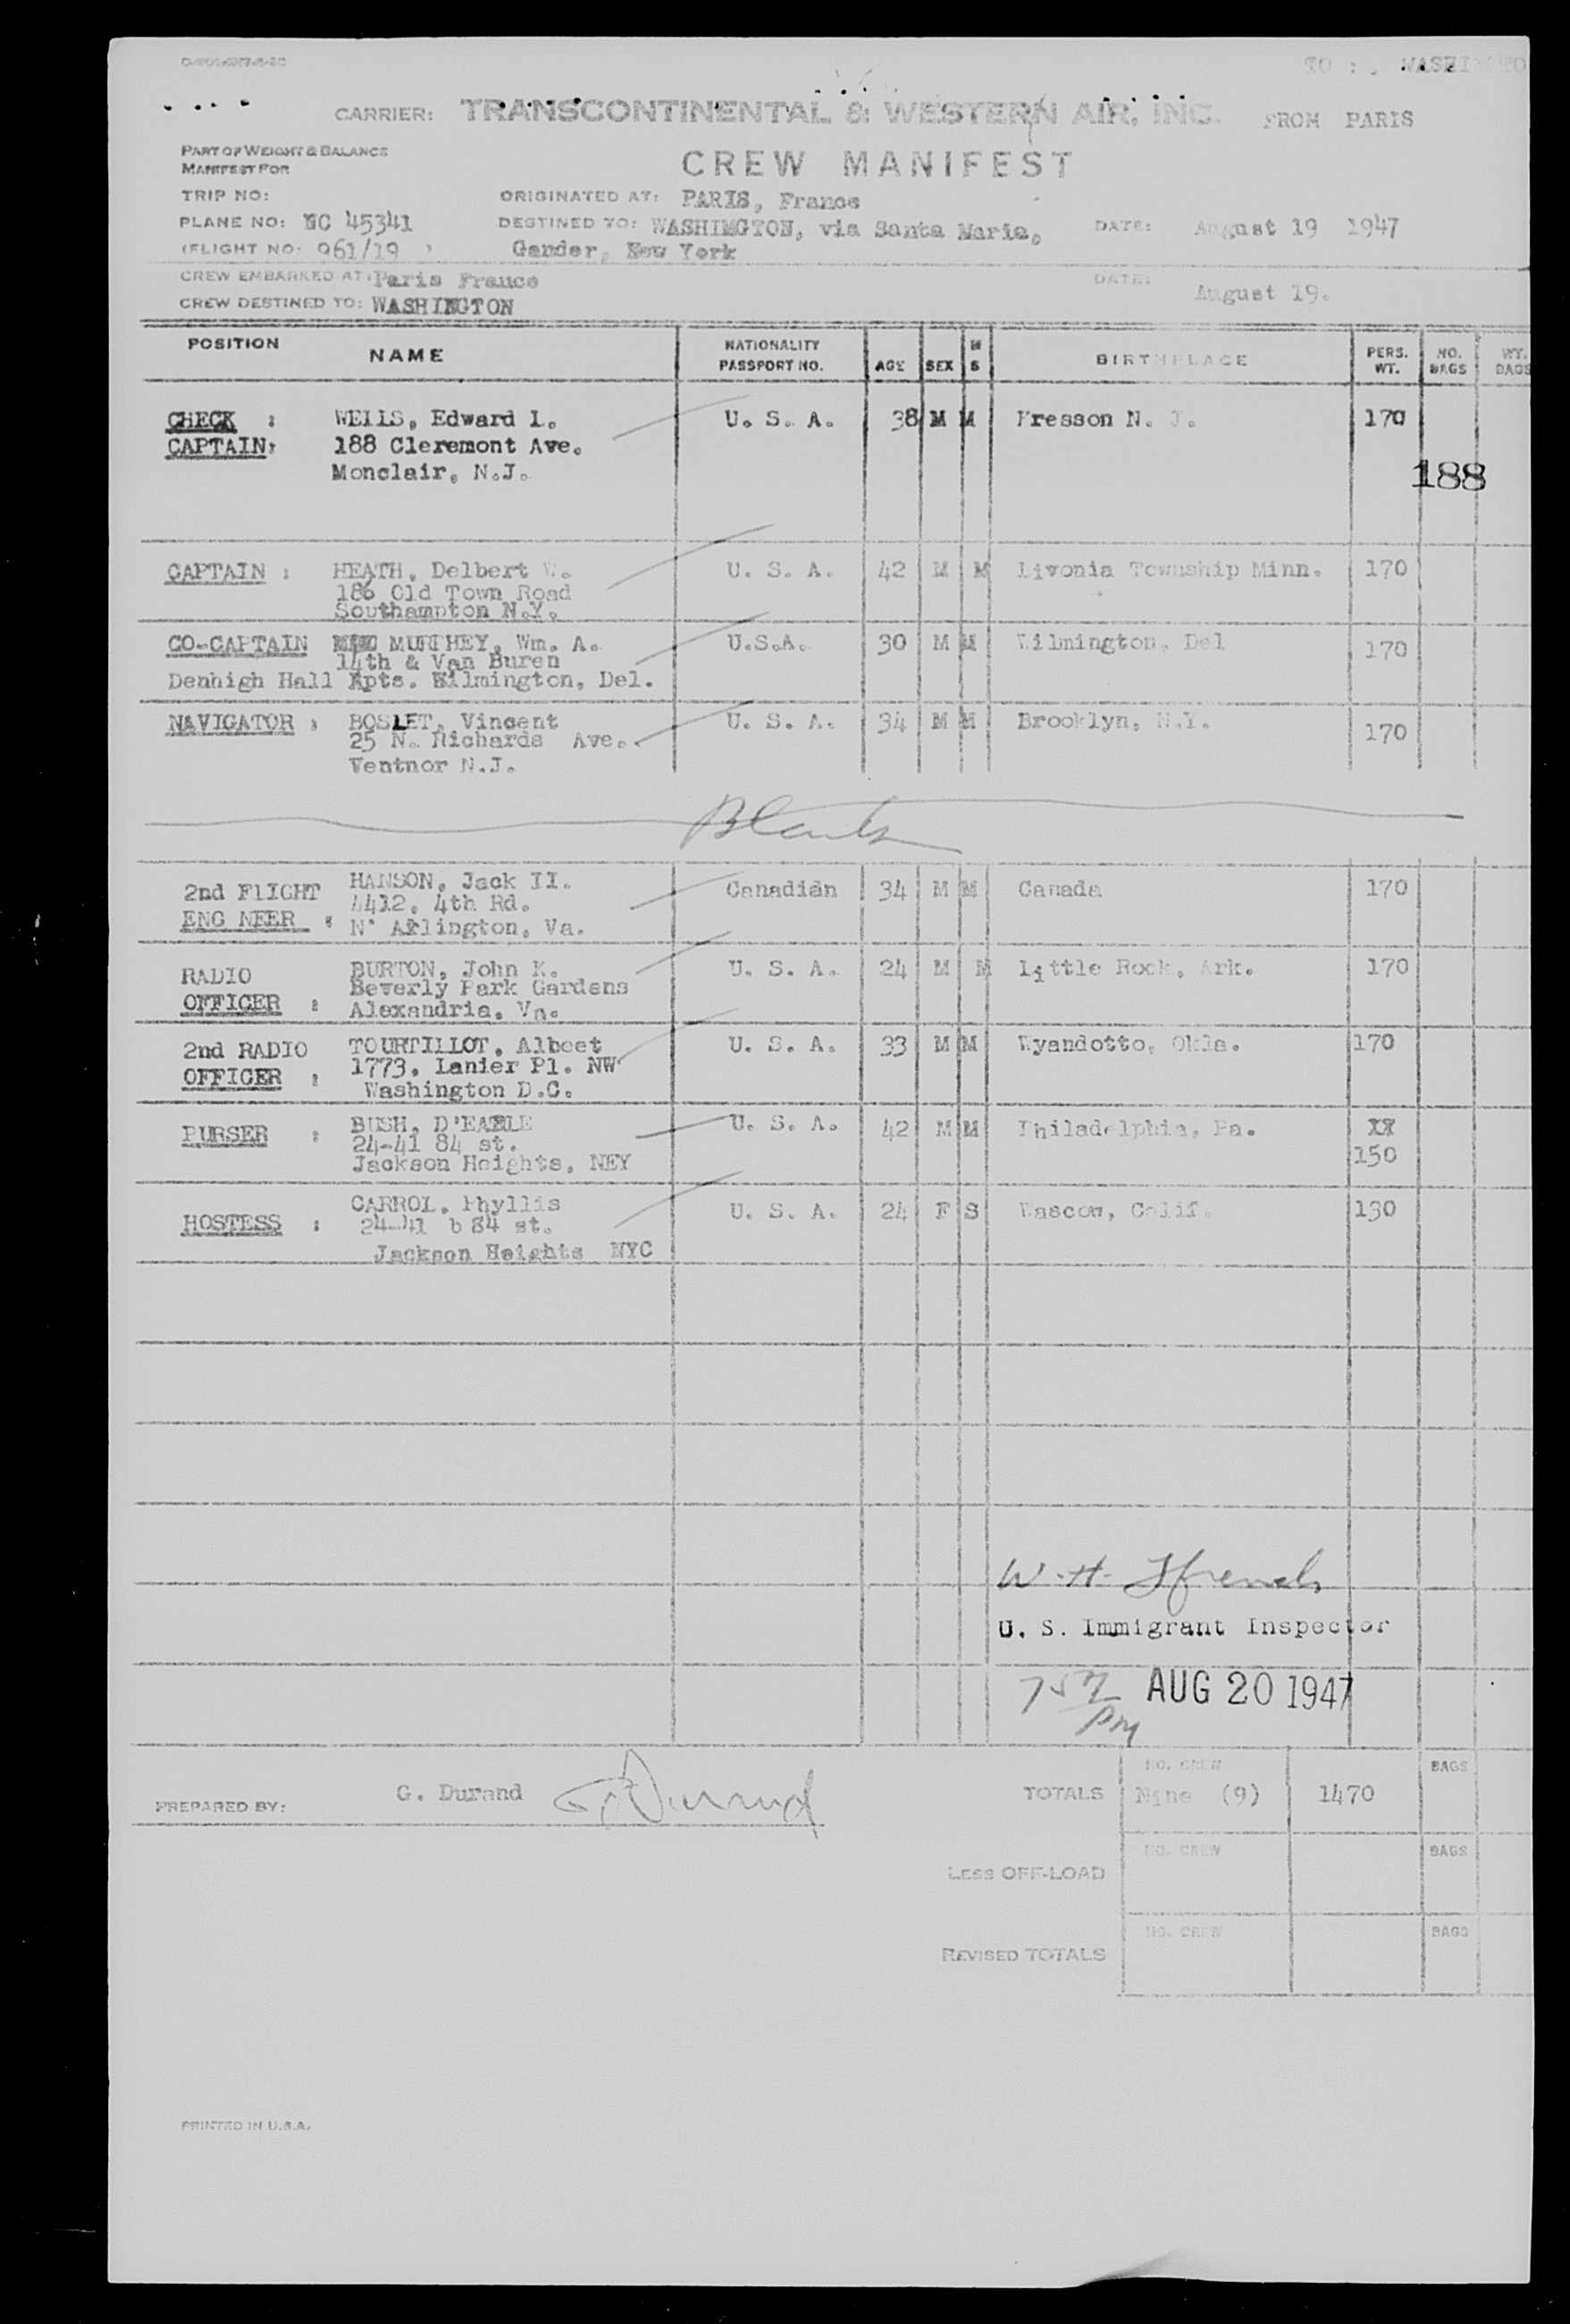 TO : WASHINGTO
CARRIER: TRANSCONTINENTAL & WESTERN AIR, INC. FROM PARIS
PART OF WEIGHT & BALANCE
MANIFEST FOR
CREW MANIFEST
TRIP NO: ORIGINATED AT: PARIS, France
PLANE NO: NC 45341 DESTINED TO: WASHINGTON, via Santa Maria, DATE: August 19 1947
(FLIGHT NO. 961/19 ) Gander, New York
CREW EMBARKED AT: Paris France DATE: August 19.
CREW DESTINED TO: WASHINGTON
POSITION NAME NATIONALITY PASSPORT NO. AGE SEX M S BIRTHPLACE PERS. WT. NO. BAGS WT. BAGS
CHECK : WELLS, Edward I. U. S. A. 38 M M Kresson N. J. 170
CAPTAIN: 188 Cleremont Ave.
Monclair, N.J.
188
CAPTAIN : HEATH, Delbert W. U. S. A. 42 M M Livonia Township Minn. 170
186 Old Town Road
Southampton N.Y.
CO-CAPTAIN MURPHEY, Wm. A. U.S.A. 30 M M Wilmington, Del 170
14th & Van Buren
Denhigh Hall Apts. Wilmington, Del.
NAVIGATOR : BOSLET, Vincent U. S. A. 34 M M Brooklyn, N.Y. 170
25 N. Richards Ave.
Ventnor N.J.
Blank
2nd FLIGHT HANSON, Jack II. Canadian 34 M M Canada 170
ENG NEER : 4412, 4th Rd.
N' Arlington, Va.
RADIO BURTON, John K. U. S. A. 24 M M Little Rock, Ark. 170
OFFICER : Beverly Park Gardens
Alexandria. Va.
2nd RADIO TOURTILLOT, Albeet U. S. A. 33 M M Wyandotto, Okla. 170
OFFICER : 1773. Lanier Pl. NW
Washington D.C.
PURSER : BUSH, D'EARLE U. S. A. 42 M M Philadelphia, Pa. XX
24-41 84 st. 150
Jackson Heights, NEY
HOSTESS : CARROL, Phyllis U. S. A. 24 F S Wascow, Calif. 130
24-41 b 84 st.
Jackson Heights NYC
W. H. Ffrench
U. S. Immigrant Inspector
757 PM AUG 20 1947
PREPARED BY: G. Durand G. Durand
TOTALS NO. CREW Nine (9) 1470 BAGS
LESS OFF-LOAD NO. CREW BAGS
REVISED TOTALS NO. CREW BAGS
PRINTED IN U.S.A.